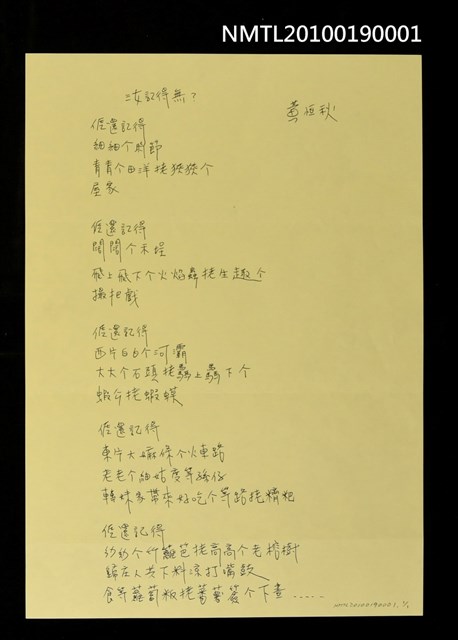 NMTL20100190001
汝記得無？
黃恒秋
𠊎還記得
細細个時節
青青个田洋𢯭狹狹个
屋家
𠊎還記得
闊闊个禾埕
飛上飛下个火焰蟲𢯭生趣个
撮把戲
𠊎還記得
西片白白个河壩
大大个石頭𢯭蟲上蟲下个
蝦公𢯭蝦蟆
𠊎還記得
東片大嫲條个火車路
老老个細姑渡等孫仔
轉妹家帶來好吃个等路𢯭糖粑
𠊎還記得
幼幼个竹籬笆𢯭高高个老榕樹
歸庄人共下料涼打嘴鼓
食等蘿蔔粄𢯭蕃薯簽个下晝.....
NMTL20100190001, 1/1